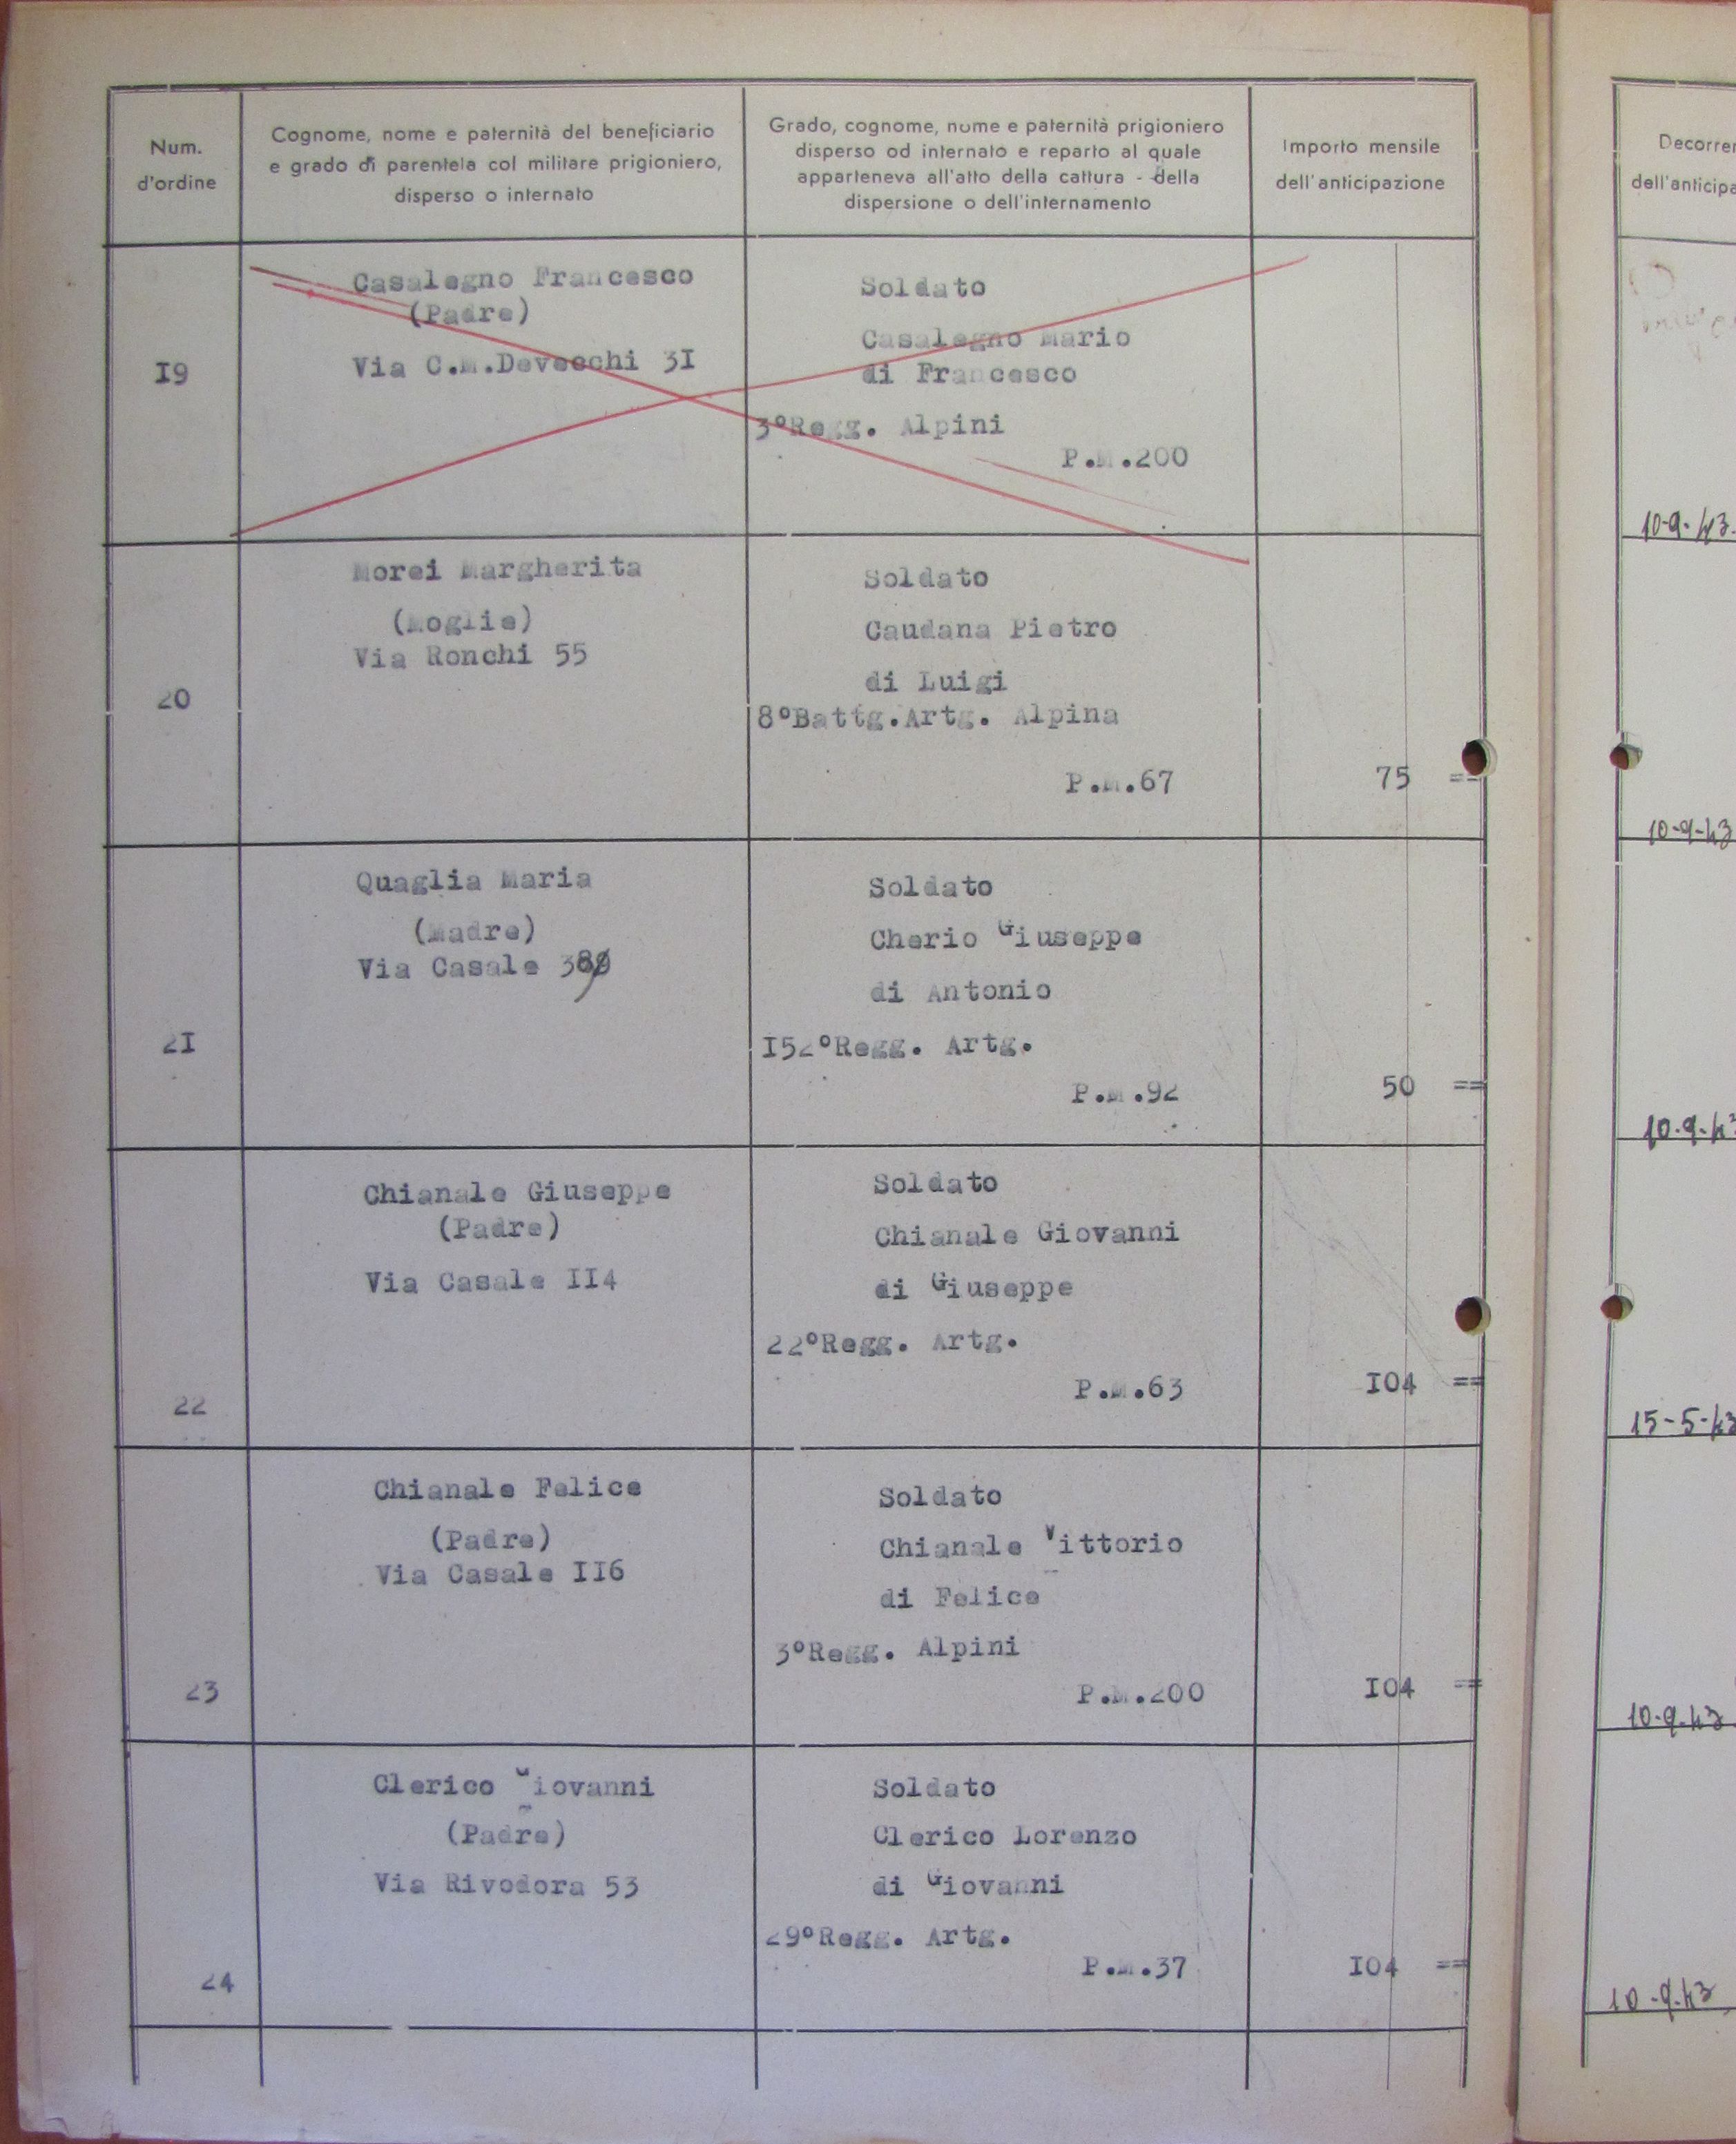 Num.
d'ordine
Cognome, nome e paternità del beneficiario
e grado di parentela col militare prigioniero,
disperso o internato
Grado, cognome, nome e paternità prigioniero
disperso od internato e reparto al quale
apparteneva all'atto della cattura - della
dispersione o dell'internamento
Importo mensile
dell'anticipazione
19
Casalegno Francesco
(Padre)
Via C.M.Devecchi 3I
Soldato
Casalegno Mario
di Francesco
3°Regg. Alpini
P.M.200
20
Morei Margherita
(Moglie)
Via Ronchi 55
Soldato
Caudana Pietro
di Luigi
8°Battg.Artg. Alpina
P.M.67
75 ==
2I
Quaglia Maria
(Madre)
Via Casale
Soldato
Cherio Giuseppe
di Antonio
I52°Regg. Artg.
P.M.92
50 ==
22
Chianale Giuseppe
(Padre)
Via Casale II4
Soldato
Chianale Giovanni
di Giuseppe
22°Regg. Artg.
P.M.63
I04 ==
23
Chianale Felice
(Padre)
Via Casale II6
Soldato
Chianale Vittorio
di Felice
3°Regg. Alpini
P.M.200
I04 ==
24
Clerico Giovanni
(Padre)
Via Rivodora 53
Soldato
Clerico Lorenzo
di Giovanni
29°Regg. Artg.
P.M.37
I04 ==
Decorren
dell'anticipa
10-9-43
10-9-43
10-9-43
15-5-43
10-9-43
10-9-43